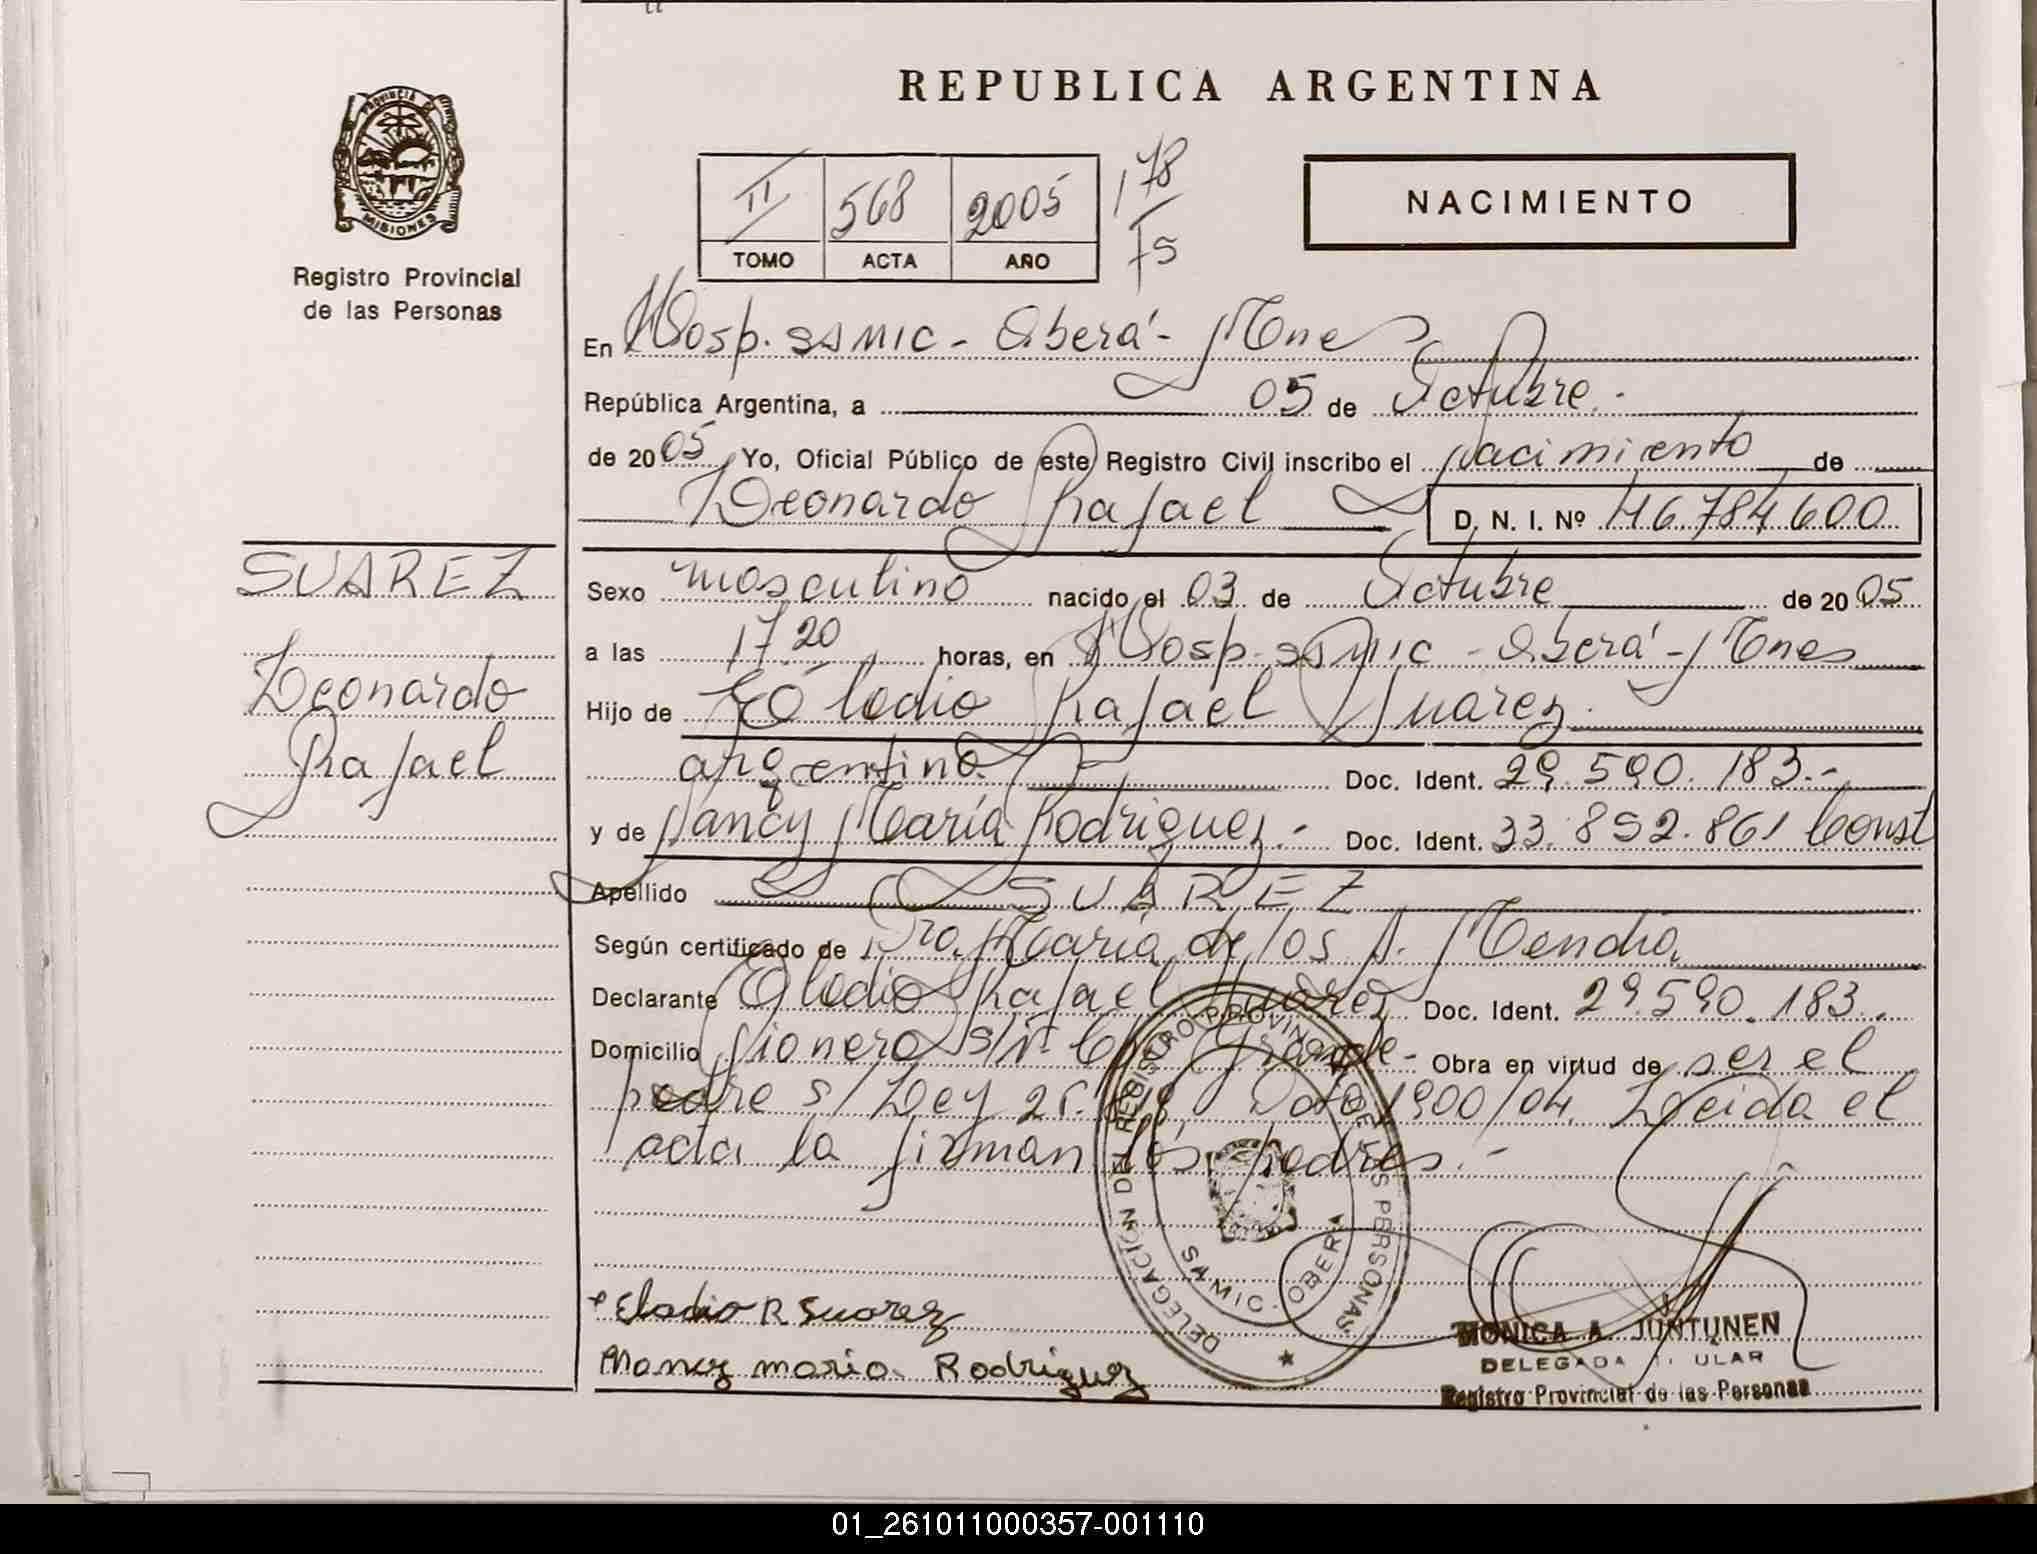 REPUBLICA ARGENTINA
PROVINCIA DE MISIONES
Registro Provincial
de las Personas
II 568 2005 178
TOMO ACTA AÑO FS
NACIMIENTO
En Hosp. SAMIC - Oberá - Mnes
República Argentina, a 05 de Octubre.-
de 2005 Yo, Oficial Público de este Registro Civil inscribo el Nacimiento de
Leonardo Rafael D. N. I. Nº 46.784.600
SUAREZ
Leonardo
Rafael
Sexo masculino nacido el 03 de Octubre de 2005
a las 17.20 horas, en Hosp. SAMIC - Oberá - Mnes
Hijo de Eladio Rafael Suarez
argentino. Doc. Ident. 29.590.183.-
y de Nancy María Rodriguez.- Doc. Ident. 33.892.861 Const
Apellido SUAREZ
Según certificado de Dra. María de los A. Mendia
Declarante Eladio Rafael Suárez Doc. Ident. 29.590.183.
Domicilio Pionero S/nº Cpo Grande - Obra en virtud de ser el
padre s/ Ley Dcto 1900/04. Leida el
acta la firman los padres.-
Eladio R Suarez
Nancy maria Rodriguez
DELEGACIÓN DEL REGISTRO PROVINCIAL DE LAS PERSONAS
SAMIC - OBERA
MONICA A. JUNTUNEN
DELEGADA TITULAR
Registro Provincial de las Personas
01_261011000357-001110